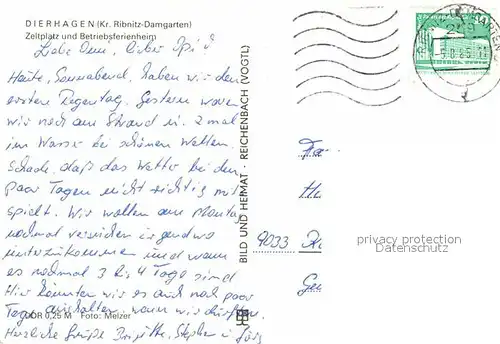 DIERHAGEN (Kr. Ribnitz-Damgarten)
Zeltplatz und Betriebsferienheim
Liebe Omi, lieber Opi!
Heute, Sonnabend, haben wir den
ersten Regentag. Gestern waren
wir noch am Strand u. 2 mal
im Wasser bei schönen Wellen.
Schade, daß das Wetter bei den
paar Tagen nicht richtig mit
spielt. Wir wollen am Montag
nochmal versuchen irgendwo
unterzukommen und wenn
es nochmal 3 bis 4 Tage sind
Hier könnten wir es auch noch paar
Tage aushalten, wenn wir dürften.
Herzliche Grüße Brigitte, Stephan u. Jörg
DDR 0,25 M Foto: Melzer
BILD UND HEIMAT · REICHENBACH (VOGTL)
9033
privacy protection
VDCARDS.COM